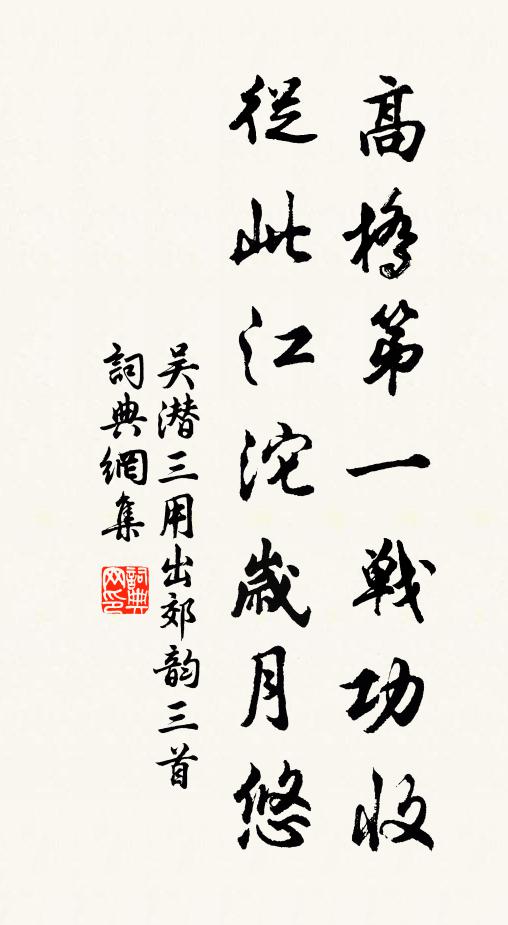 高橋第一戦功收
從此江沱歲月悠
吴潜三用出郊韵三首
詞典網集
詞典网印